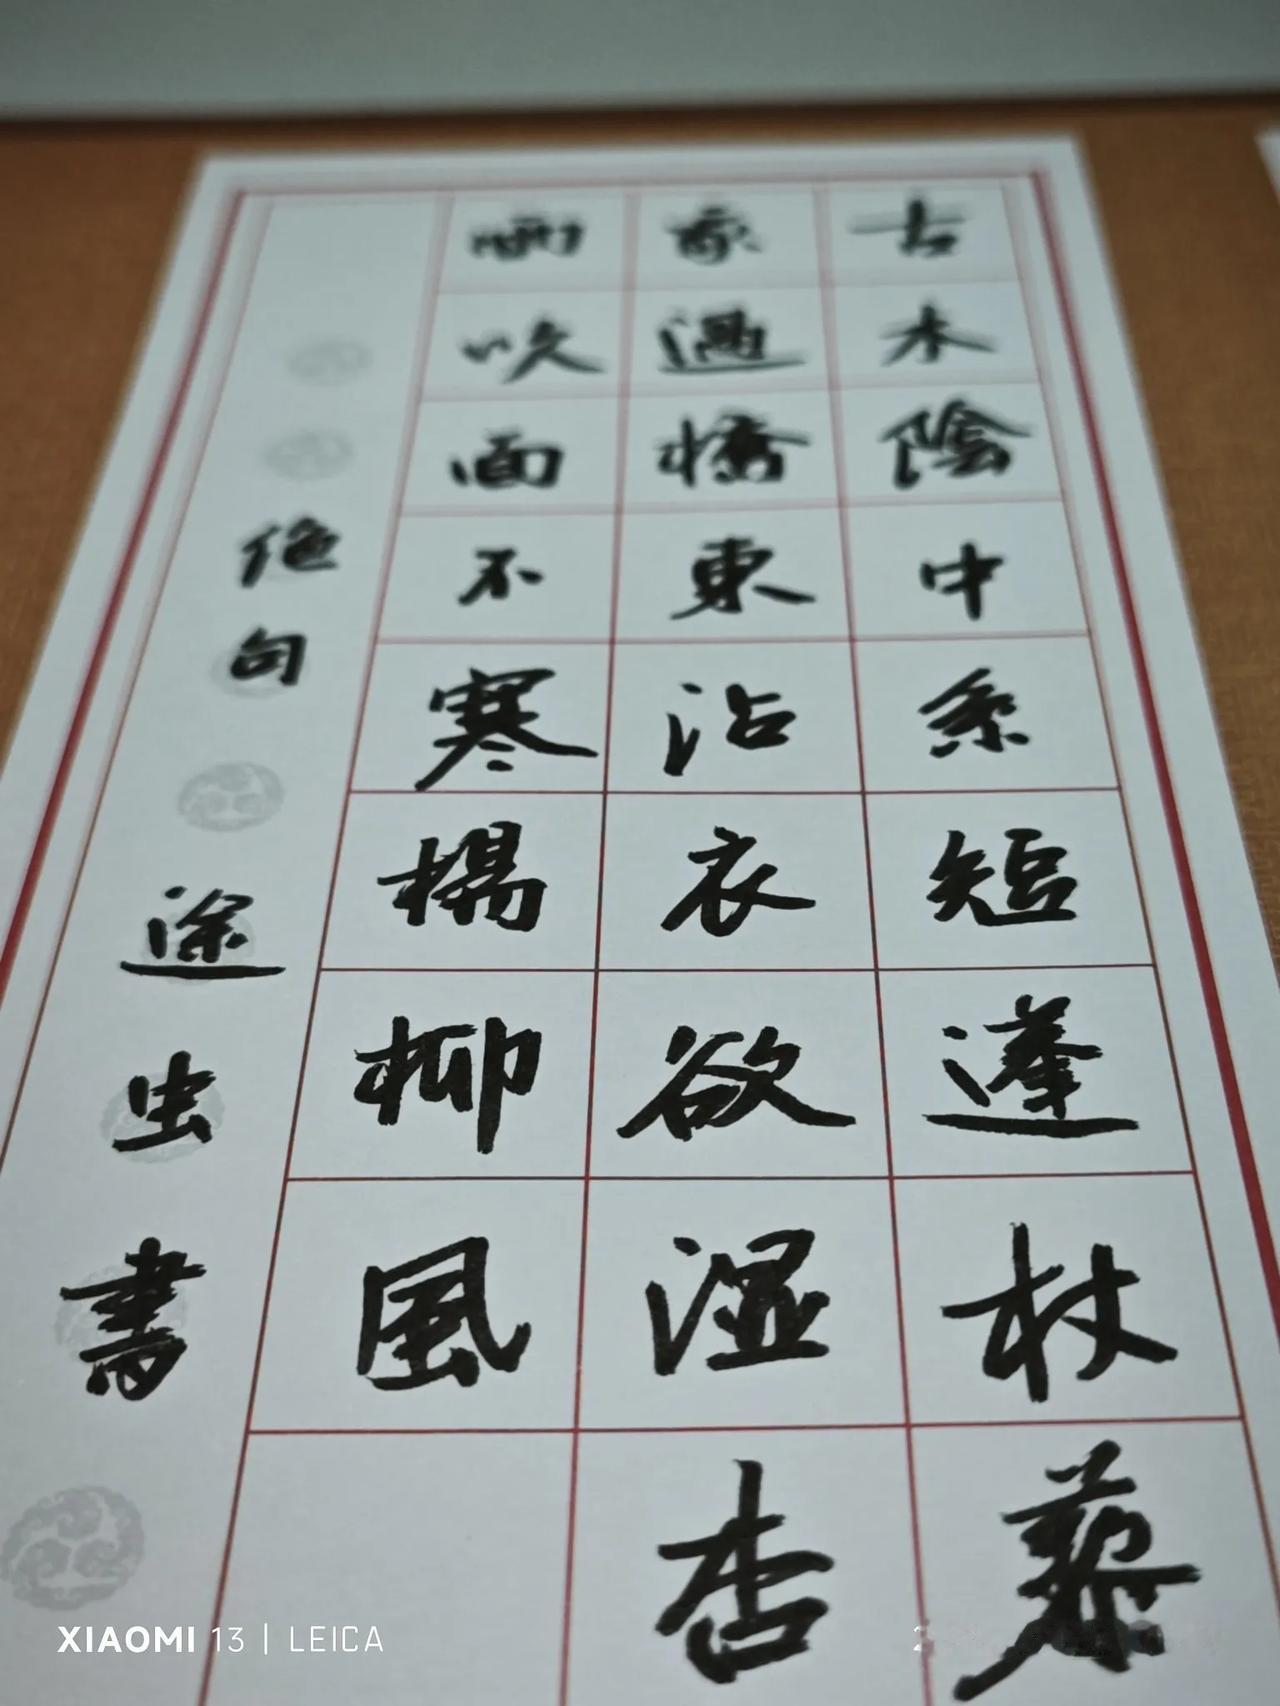 古木陰中系短蓬杖藜
過橋東沾衣欲湿杏
雨吹面不寒楊柳風
絶句 途虫書
XIAOMI 13 | LEICA